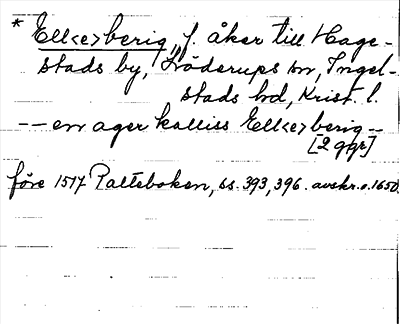 * Ell<e>berig, f. åker till Hage-
stads by, Löderups sn, Ingel-
stads hd, Krist. l.
-- en ager kalliss Ell<e>berig --
[2 ggr]
före 1517 Palteboken, ss. 393, 396. avskr. o. 1650.